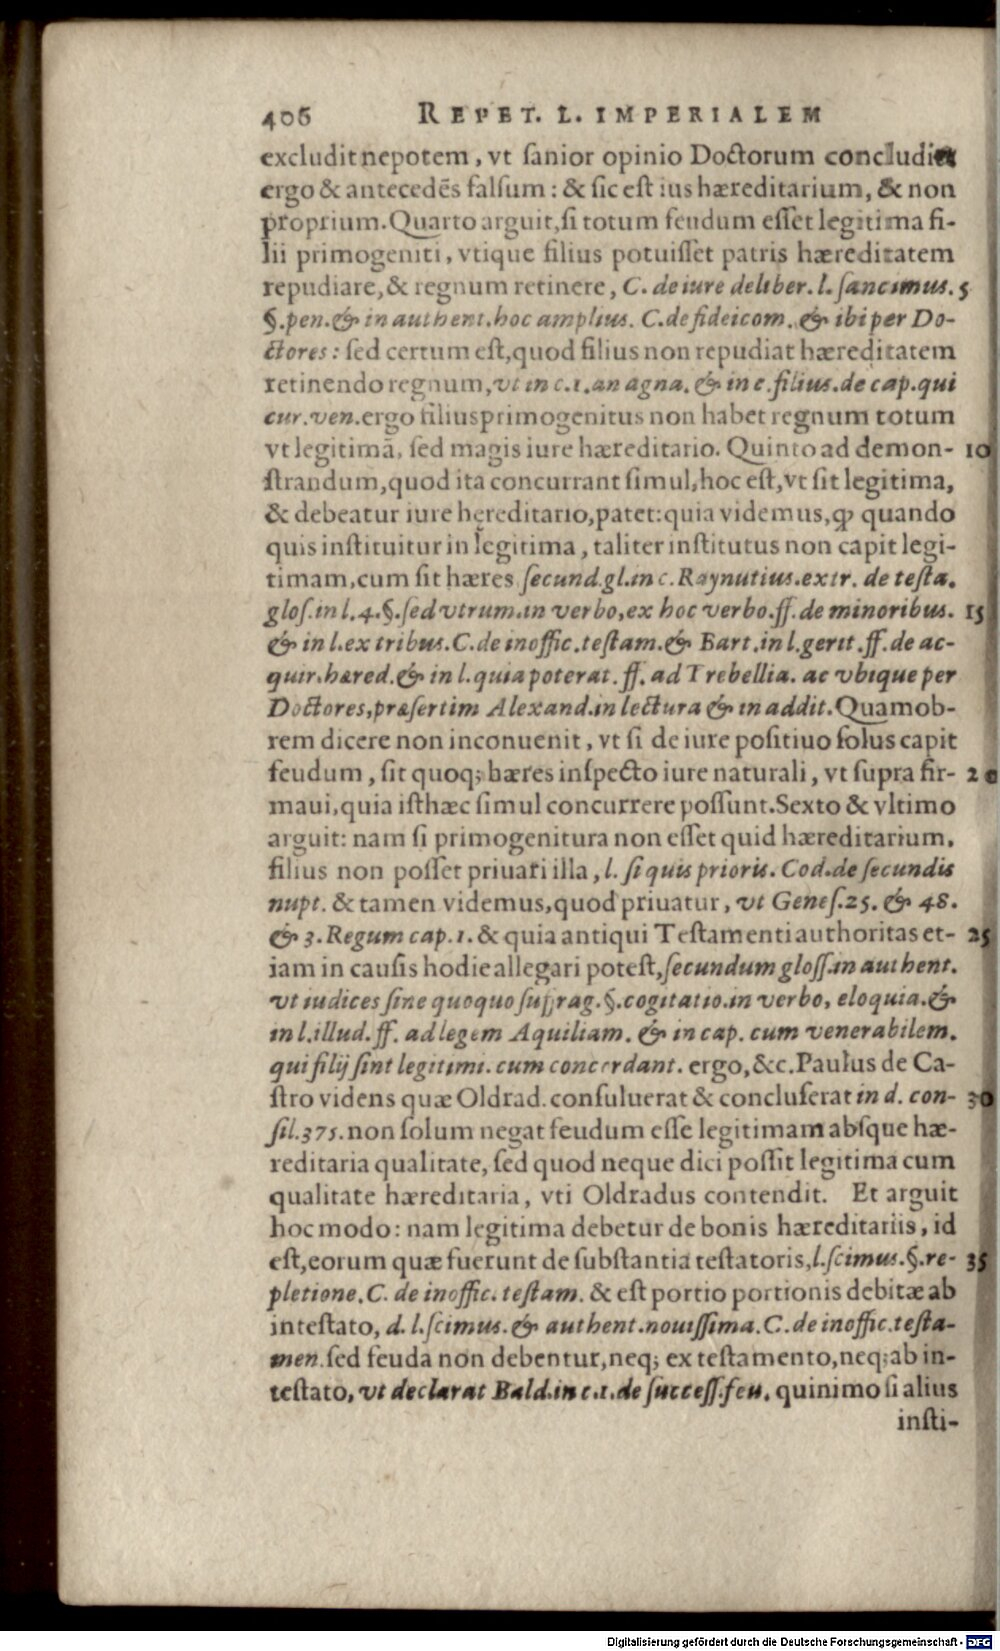 406 REPET. L. IMPERIALEM
excludit nepotem, vt ſanior opinio Doctorum concludit
ergo & antecedēs falſum: & ſic eſt ius hæreditarium, & non
proprium. Quarto arguit, ſi totum feudum eſſet legitima fi-
lii primogeniti, vtique filius potuiſſet patris hæreditatem
repudiare, & regnum retinere, C. de iure deliber. l. ſancimus. 5
§. pen. & in authent. hoc amplius. C. de fideicom. & ibi per Do-
ctores: ſed certum eſt, quod filius non repudiat hæreditatem
retinendo regnum, vt in c. 1. an agna. & in c. filius. de cap. qui
cur. ven. ergo filius primogenitus non habet regnum totum
vt legitimā, ſed magis iure hæreditario. Quinto ad demon- 10
ſtrandum, quod ita concurrant ſimul, hoc eſt, vt ſit legitima,
& debeatur iure hęreditario, patet: quia videmus, ꝙ quando
quis inſtituitur in legitima, taliter inſtitutus non capit legi-
timam, cum ſit hæres ſecund. gl. in c. Raynutius. extr. de teſta.
gloſ. in l. 4. §. ſed vtrum. in verbo, ex hoc verbo. ff. de minoribus. 15
& in l. ex tribus. C. de inoffic. teſtam. & Bart. in l. gerit. ff. de ac-
quir. hæred. & in l. quia poterat. ff. ad Trebellia. ac vbique per
Doctores, præſertim Alexand. in lectura & in addit. Quamob-
rem dicere non inconuenit, vt ſi de iure poſitiuo ſolus capit
feudum, ſit quoq; hæres inſpecto iure naturali, vt ſupra fir- 20
maui, quia iſthæc ſimul concurrere poſſunt. Sexto & vltimo
arguit: nam ſi primogenitura non eſſet quid hæreditarium,
filius non poſſet priuari illa, l. ſi quis prioris. Cod. de ſecundis
nupt. & tamen videmus, quod priuatur, vt Geneſ. 25. & 48.
& 3. Regum cap. 1. & quia antiqui Teſtamenti authoritas et- 25
iam in cauſis hodie allegari poteſt, ſecundum gloſſ. in authent.
vt iudices ſine quoquo ſuffrag. §. cogitatio. in verbo, eloquia. &
in l. illud. ff. ad legem Aquiliam. & in cap. cum venerabilem.
qui filij ſint legitimi. cum concordant. ergo, &c. Paulus de Ca-
ſtro videns quæ Oldrad. conſuluerat & concluſerat in d. con- 30
ſil. 375. non ſolum negat feudum eſſe legitimam abſque hæ-
reditaria qualitate, ſed quod neque dici poſſit legitima cum
qualitate hæreditaria, vti Oldradus contendit. Et arguit
hoc modo: nam legitima debetur de bonis hæreditariis, id
eſt, eorum quæ fuerunt de ſubſtantia teſtatoris, l. ſcimus. §. re- 35
pletione. C. de inoffic. teſtam. & eſt portio portionis debitæ ab
inteſtato, d. l. ſcimus. & authent. nouiſſima. C. de inoffic. teſta-
men. ſed feuda non debentur, neq; ex teſtamento, neq; ab in-
teſtato, vt declarat Bald. in c. 1. de ſucceſſ. feu. quinimo ſi alius
inſti-
Digitalisierung gefördert durch die Deutsche Forschungsgemeinschaft - DFG